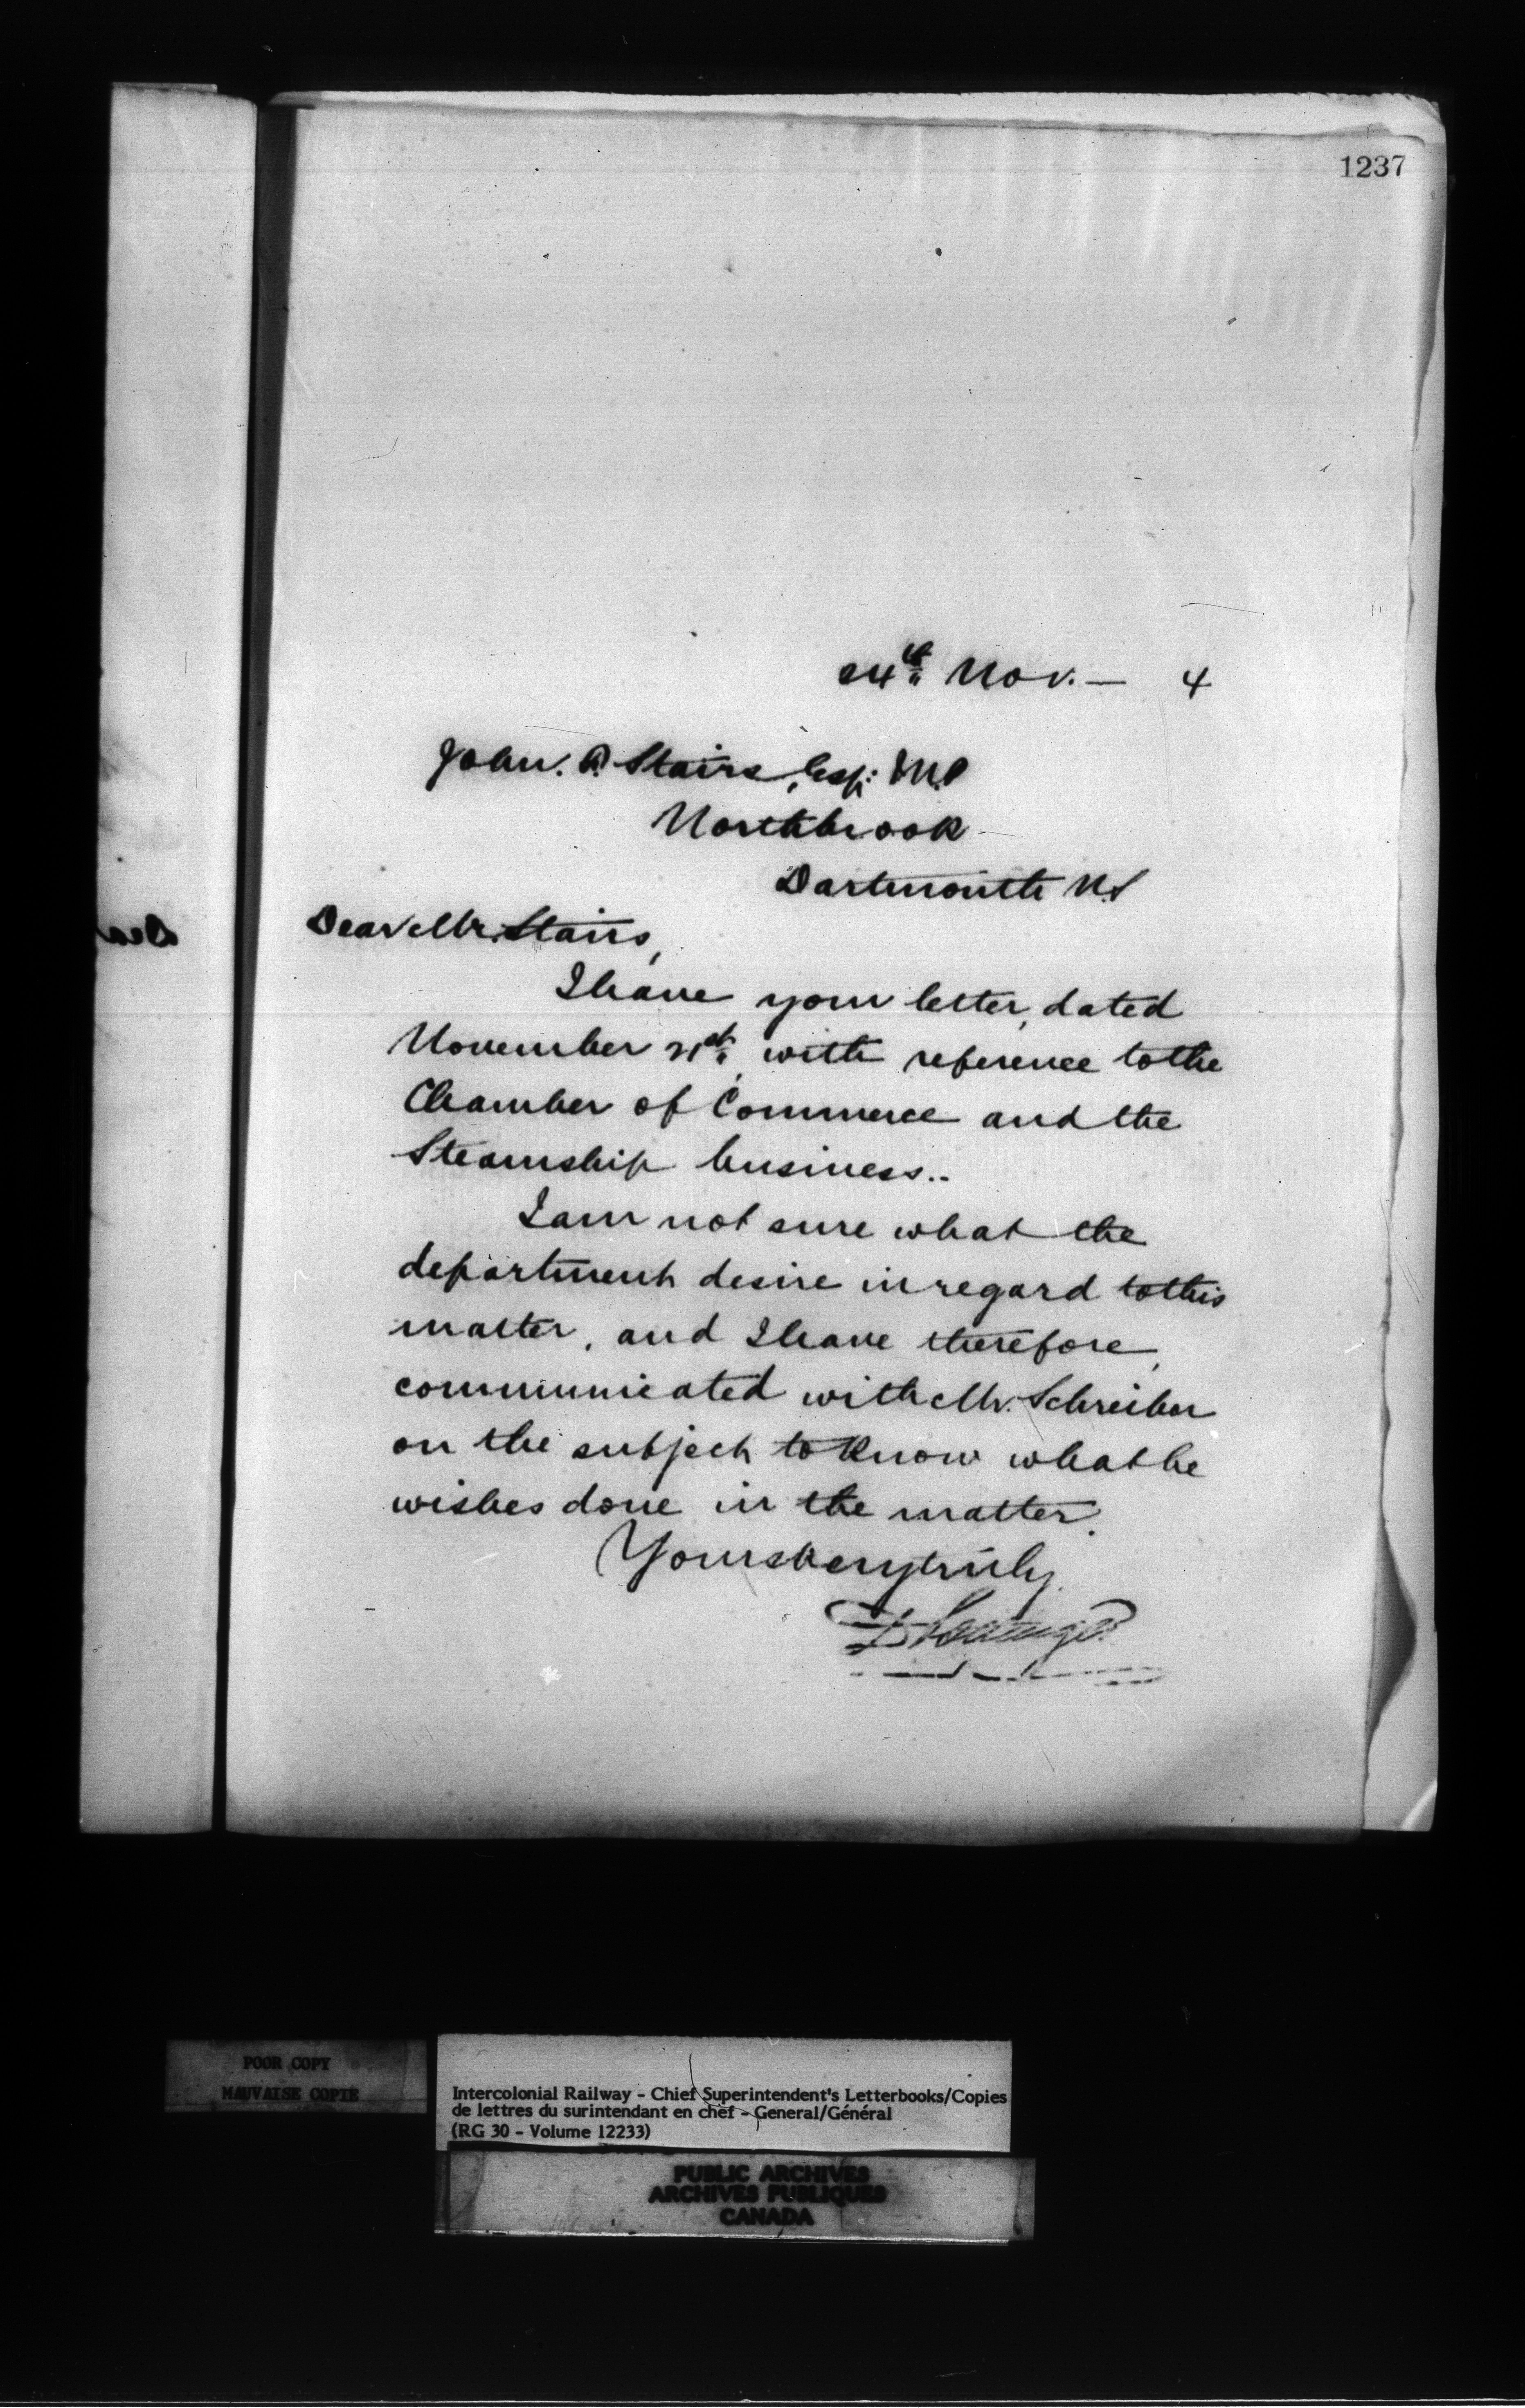 1237
24th Nov. — 4
John. F. Stairs, Esq: M.P
Northbrook
Dartmouth N.S
Dear Mr. Stairs,
I have your letter, dated
November 21st, with reference to the
Chamber of Commerce and the
Steamship business..
I am not sure what the
department desire in regard to this
matter, and I have therefore,
communicated with Mr. Schreiber
on the subject to know what he
wishes done in the matter.
Yours very truly.
D Pottinger
Dea
POOR COPY
MAUVAISE COPIE
Intercolonial Railway - Chief Superintendent's Letterbooks/Copies
de lettres du surintendant en chef - General/Général
(RG 30 - Volume 12233)
PUBLIC ARCHIVES
ARCHIVES PUBLIQUES
CANADA